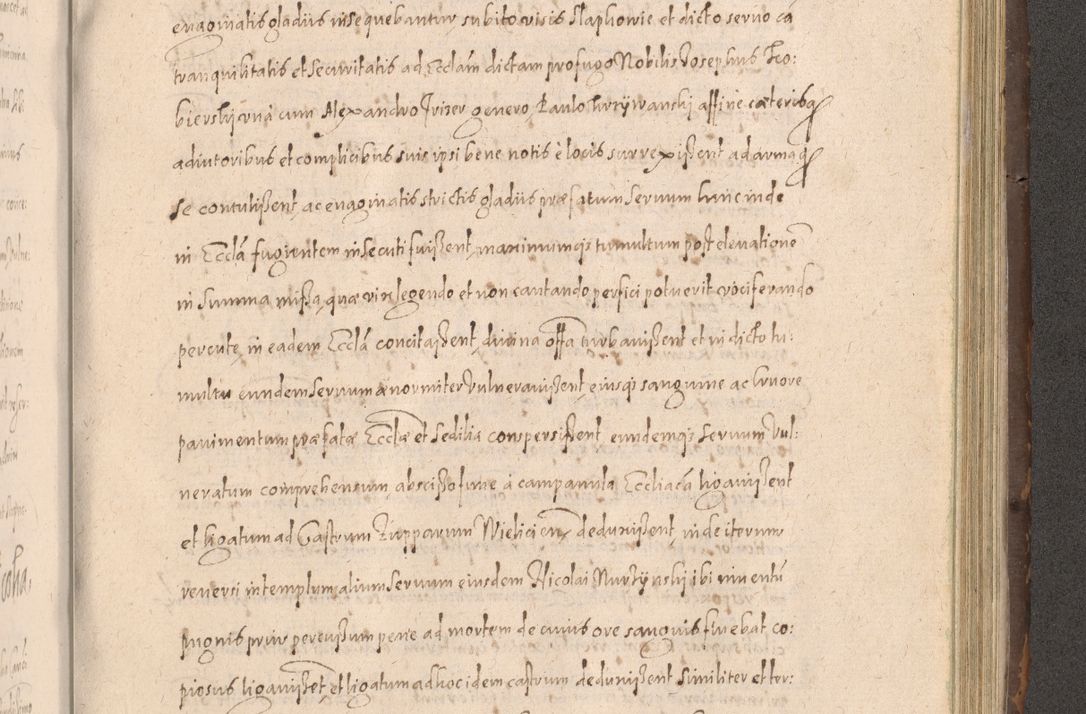 euaginatis gladiis insequebantur subito visis Slaphonie et dicto seruo cã
tranquilitatis et securitatis ad Eccłam dictam profugo Nobilis Josephus Feo:
bierskij vna cum Alexandro Jriser genero Paulo Krzÿwanskj affine caeterisq
adiutoribus et complicibus suis ipsi bene notis è locis surrexissent ad armaq
se contulissent ac euaginatis strictis gladiis praefatum seruum huncinde
in Eccłã fugientem insecuti fuissent, maximumqȝ tumultum post eleuationẽ
in summa missa, quae vix legendo et non cantando perfici potuerit vociferando
percute, in eadem Eccłã concitassent, diuina offa turbauissent et in dicto tu:
multu eundem seruum aenormiter vulnerauissent, eiusqȝ sanguine ac cruore
pauimentum praefatae Eccłae et sedilia conspersissent, eundemqȝ seruum vul:
neratum comprehensum, abscisso fune à campanula Eccliacã ligauissent
et ligatum ad Castrum Zupparum Wielicien deduxissent, inde iterum
reuersi in templum, alium seruum eiusdem Nicolai Murzÿnskj ibi inuentũ
pugnis prius percussum pene ad mortem de cuius ore sanguis fluebat co:
piosus ligauissẽt, et ligatum ad hoc idem castrum deduxissent similiter et ter: